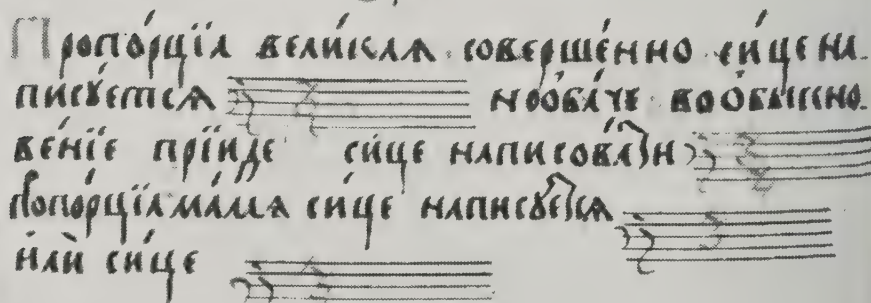 Пропо́рцїѧ вели́каѧ совершє́нно си́це на-
писꙋ́етсѧ но ѻба́че во ѡбыкно-
ве́нїе прїи́де си́це написова́ти
Пропо́рцїѧ ма́лаѧ си́це написꙋ́етсѧ
и҆лѝ си́це